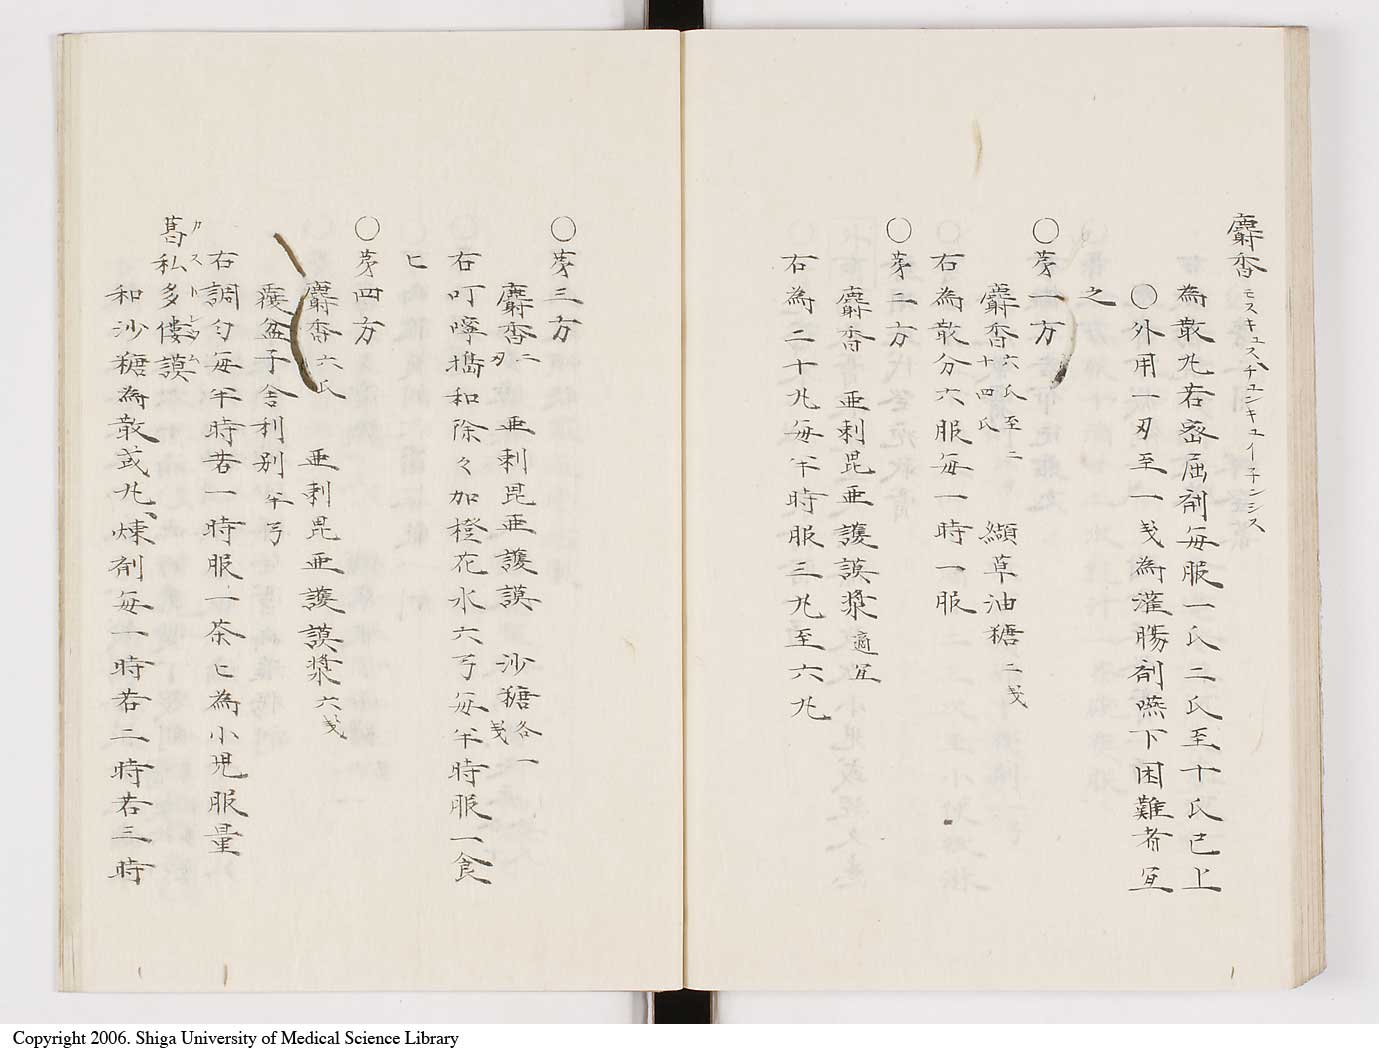 麝香 モスキュスチュンキュイ子ンシス
為散丸若密屈剤毎服一氏二氏至十氏已上
〇外用一刄至一戔為灌膓剤嚥下困難者宜
之
〇苐一方
麝香 六氏至二十四氏 纈草油糖 二戔
右為散分六服毎一時一服
〇苐二方
麝香 亜剌毘亜護謨漿 適宜
右為二十丸毎半時服三丸至六丸
〇苐三方
麝香 二刄 亜剌毘亜護謨 沙糖 各一戔
右叮嚀擣和除々加橙花水六弓毎半時服一食
匕
〇苐四方
麝香 六氏 亜剌毘亜護謨漿 六戔
覆盆子舎利别 半弓
右調匀毎半時若一時服一茶匕為小児服量
葛私多僂謨 カストレウム
和沙糖為散或丸、煉剤毎一時若二時若三時
Copyright 2006. Shiga University of Medical Science Library